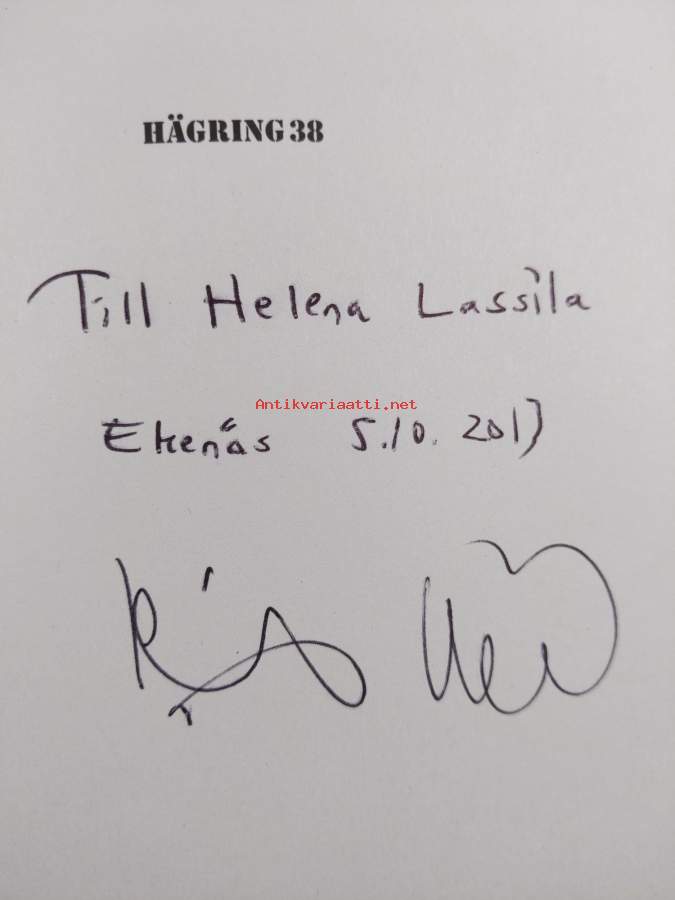 HÄGRING 38
Till Helena Lassila
Antikvariaatti.net
Ekenäs 5.10. 2013